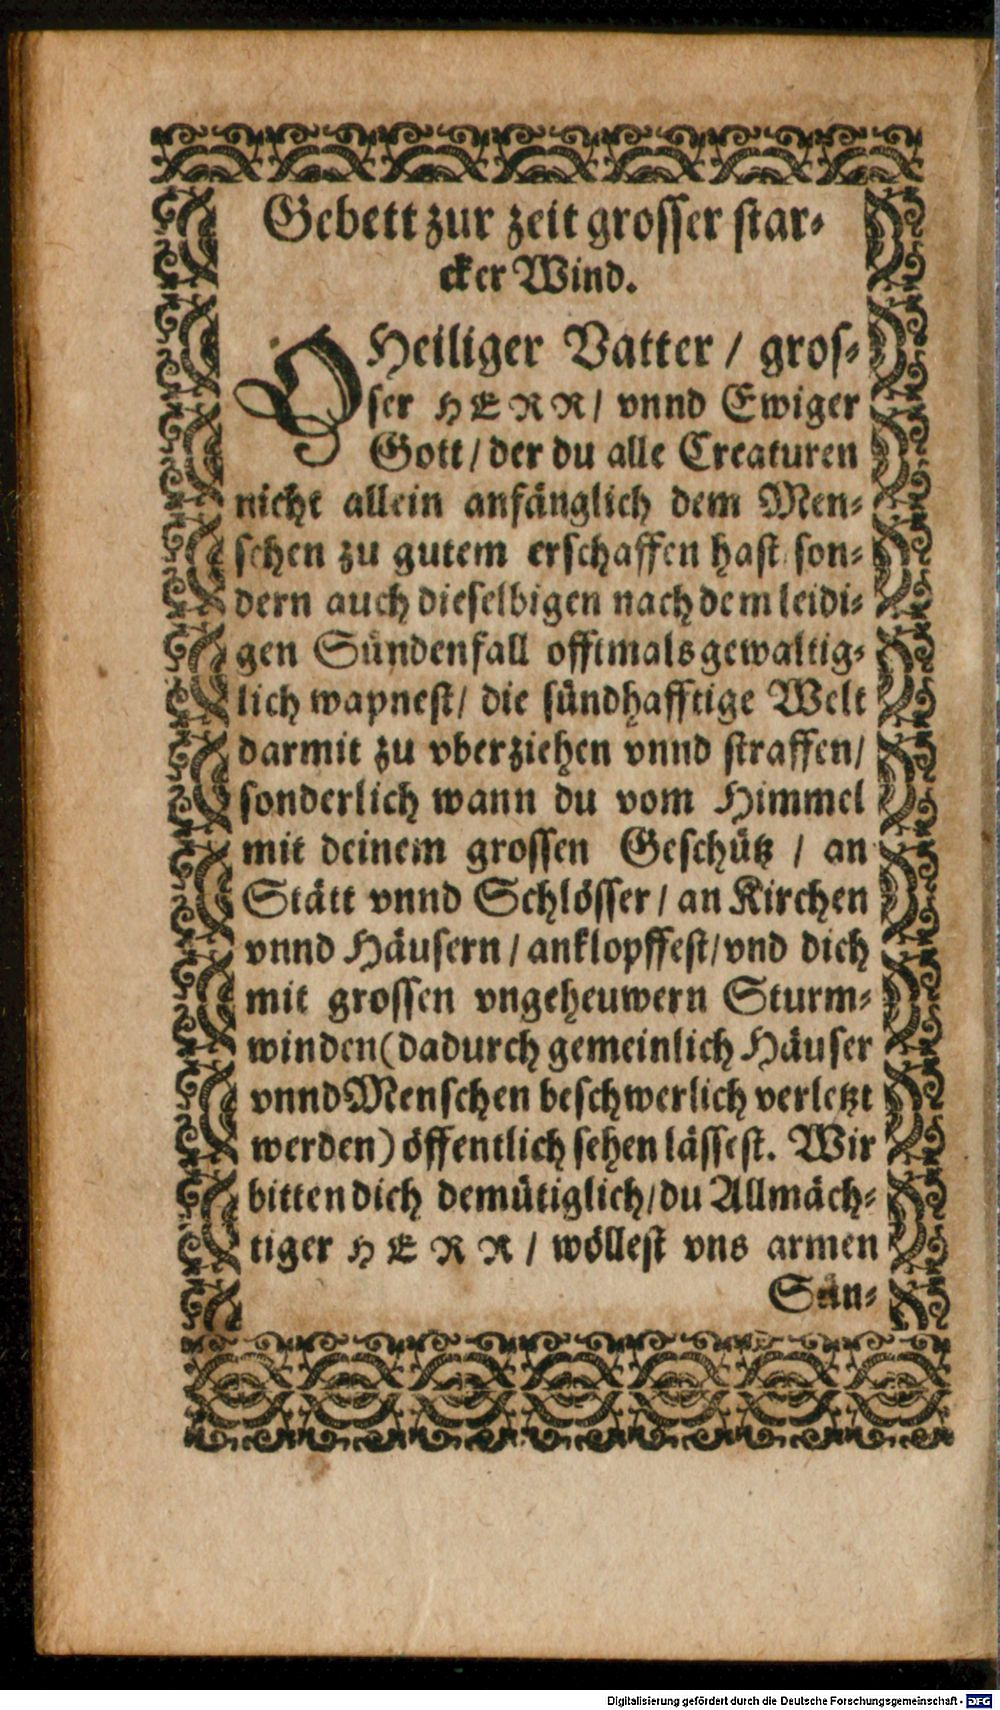 Gebett zur zeit grosser star⸗
cker Wind.
O Heiliger Vatter / gros⸗
ser HERR / vnnd Ewiger
Gott / der du alle Creaturen
nicht allein anfänglich dem Men⸗
schen zu gutem erschaffen hast son⸗
dern auch dieselbigen nach dem leidi⸗
gen Sündenfall offtmals gewaltig⸗
lich wapnest / die sündhafftige Welt
darmit zu vberziehen vnnd straffen /
sonderlich wann du vom Himmel
mit deinem grossen Geschütz / an
Stätt vnnd Schlösser / an Kirchen
vnnd Häusern / anklopffest / vnd dich
mit grossen vngeheuwern Sturm⸗
winden (dadurch gemeinlich Häuser
vnnd Menschen beschwerlich verletzt
werden) öffentlich sehen lässest. Wir
bitten dich demütiglich / du Allmäch⸗
tiger HERR / wöllest vns armen
Sün⸗
Digitalisierung gefördert durch die Deutsche Forschungsgemeinschaft - DFG